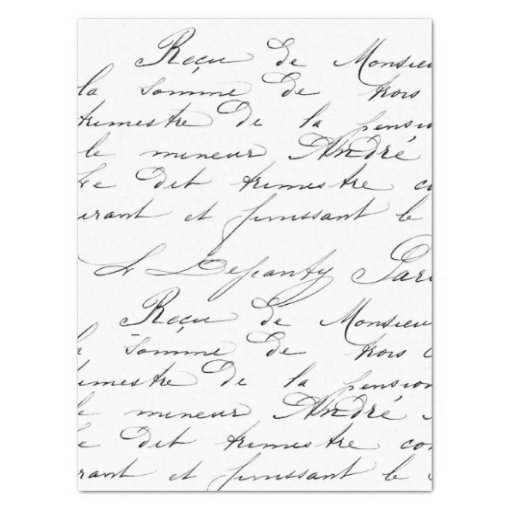 Reçu de Monsieu
la somme de trois
trimestre de la pension
le mineur André
Le dit trimestre co
urant et finissant le
Depanty Pari
Reçu de Monsieu
la somme de trois
rimestre de la pension
le mineur André
e dit trimestre con
rant et finissant le